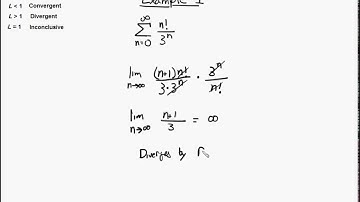 L < 1 Convergent
L > 1 Divergent
L = 1 Inconclusive
Example 1
∞ ∑ n=0 n!/3^n
lim n→∞ (n+1)n!/3·3^n · 3^n/n!
lim n→∞ n+1/3 = ∞
Diverges by